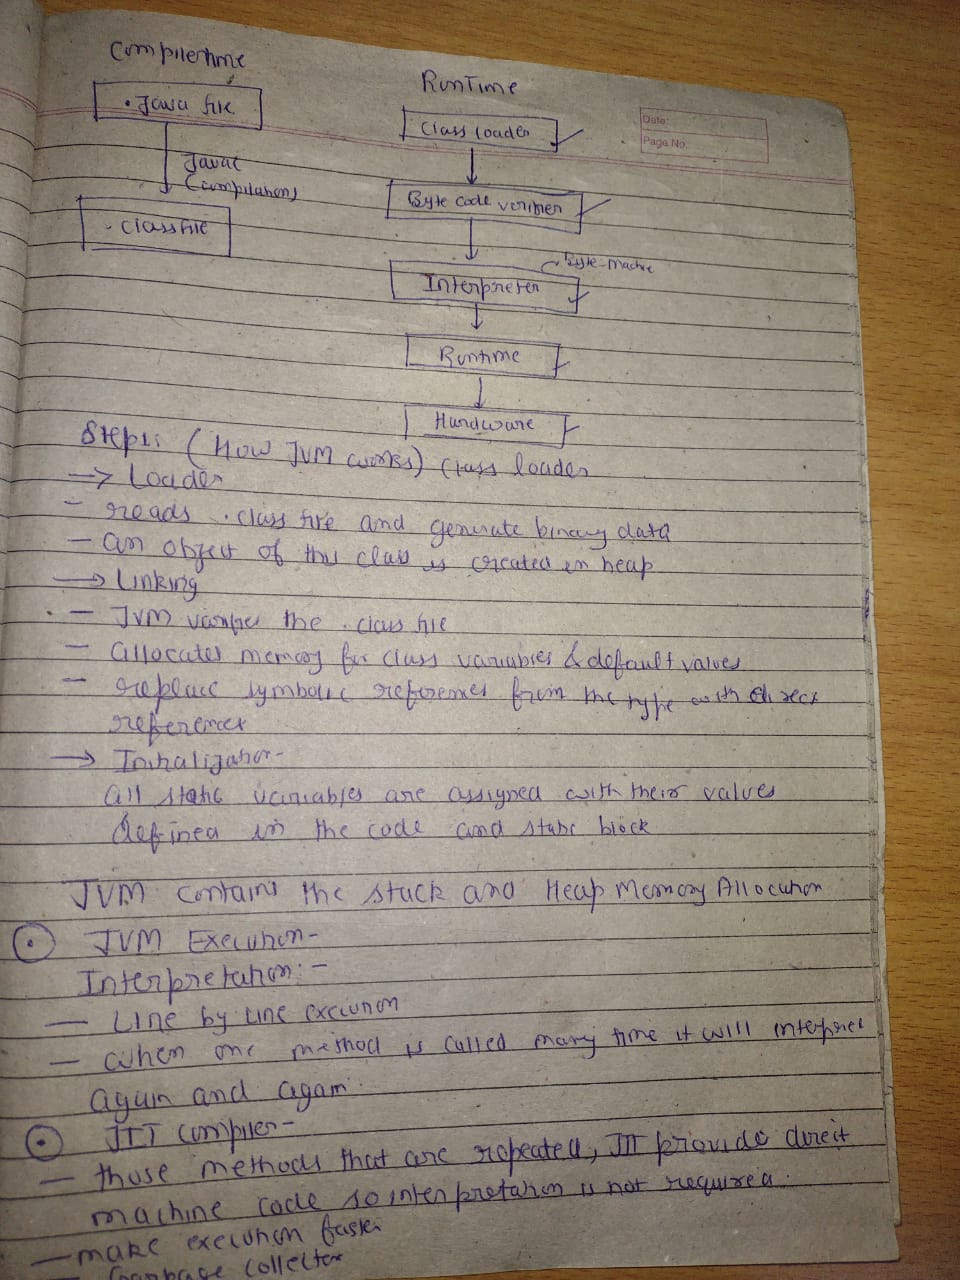 Compiletime
Runtime
.Java file
Date:
Page No.
Class loader
Javac
(compilation)
Byte code verifier
.Class file
Byte-Machine
Interpreter
Runtime
Hardware
Steps: (How JVM works) Class loader
→ Loader
- reads .class file and generate binary data
- an object of this class is created in heap
→ Linking
- JVM varifies the .class file
- allocates memory for class variables & default values
- replace symbolic references from the type with direct
references
→ Initialization-
all static variables are assigned with their values
defined in the code and static block
JVM contains the stack and Heap Memory Allocation
JVM Execution-
Interpretation:-
- Line by Line execution
- When one method is called many time it will interpret
again and again.
JIT compiler-
- those methods that are repeated, JIT provide direct
machine code so interpretation is not required.
- make execution faster
- Garbage collector